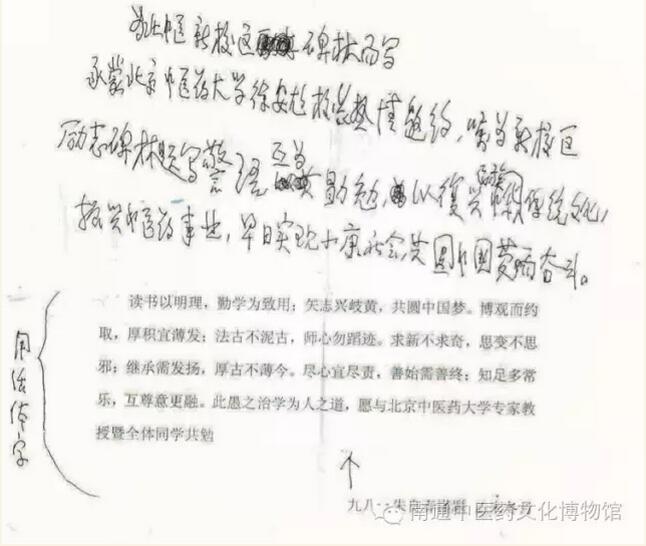 为北中医新校区碑林而写
承蒙北京中医药大学徐安龙校长热情邀约，嘱为新校区
励志碑林题写警语互为勖勉，以复兴传统文化，
振兴中医药事业，早日实现小康社会，共圆中国梦而奋斗。
读书以明理，勤学为致用；矢志兴岐黄，共圆中国梦。博观而约
取，厚积宜薄发；法古不泥古，师心勿蹈迹。求新不求奇，思变不思
邪；继承需发扬，厚古不薄今。尽心宜尽责，善始需善终；知足多常
乐，互尊意更融。此愚之治学为人之道，愿与北京中医药大学专家教
授暨全体同学共勉
用活体字
九八
南通中医药文化博物馆